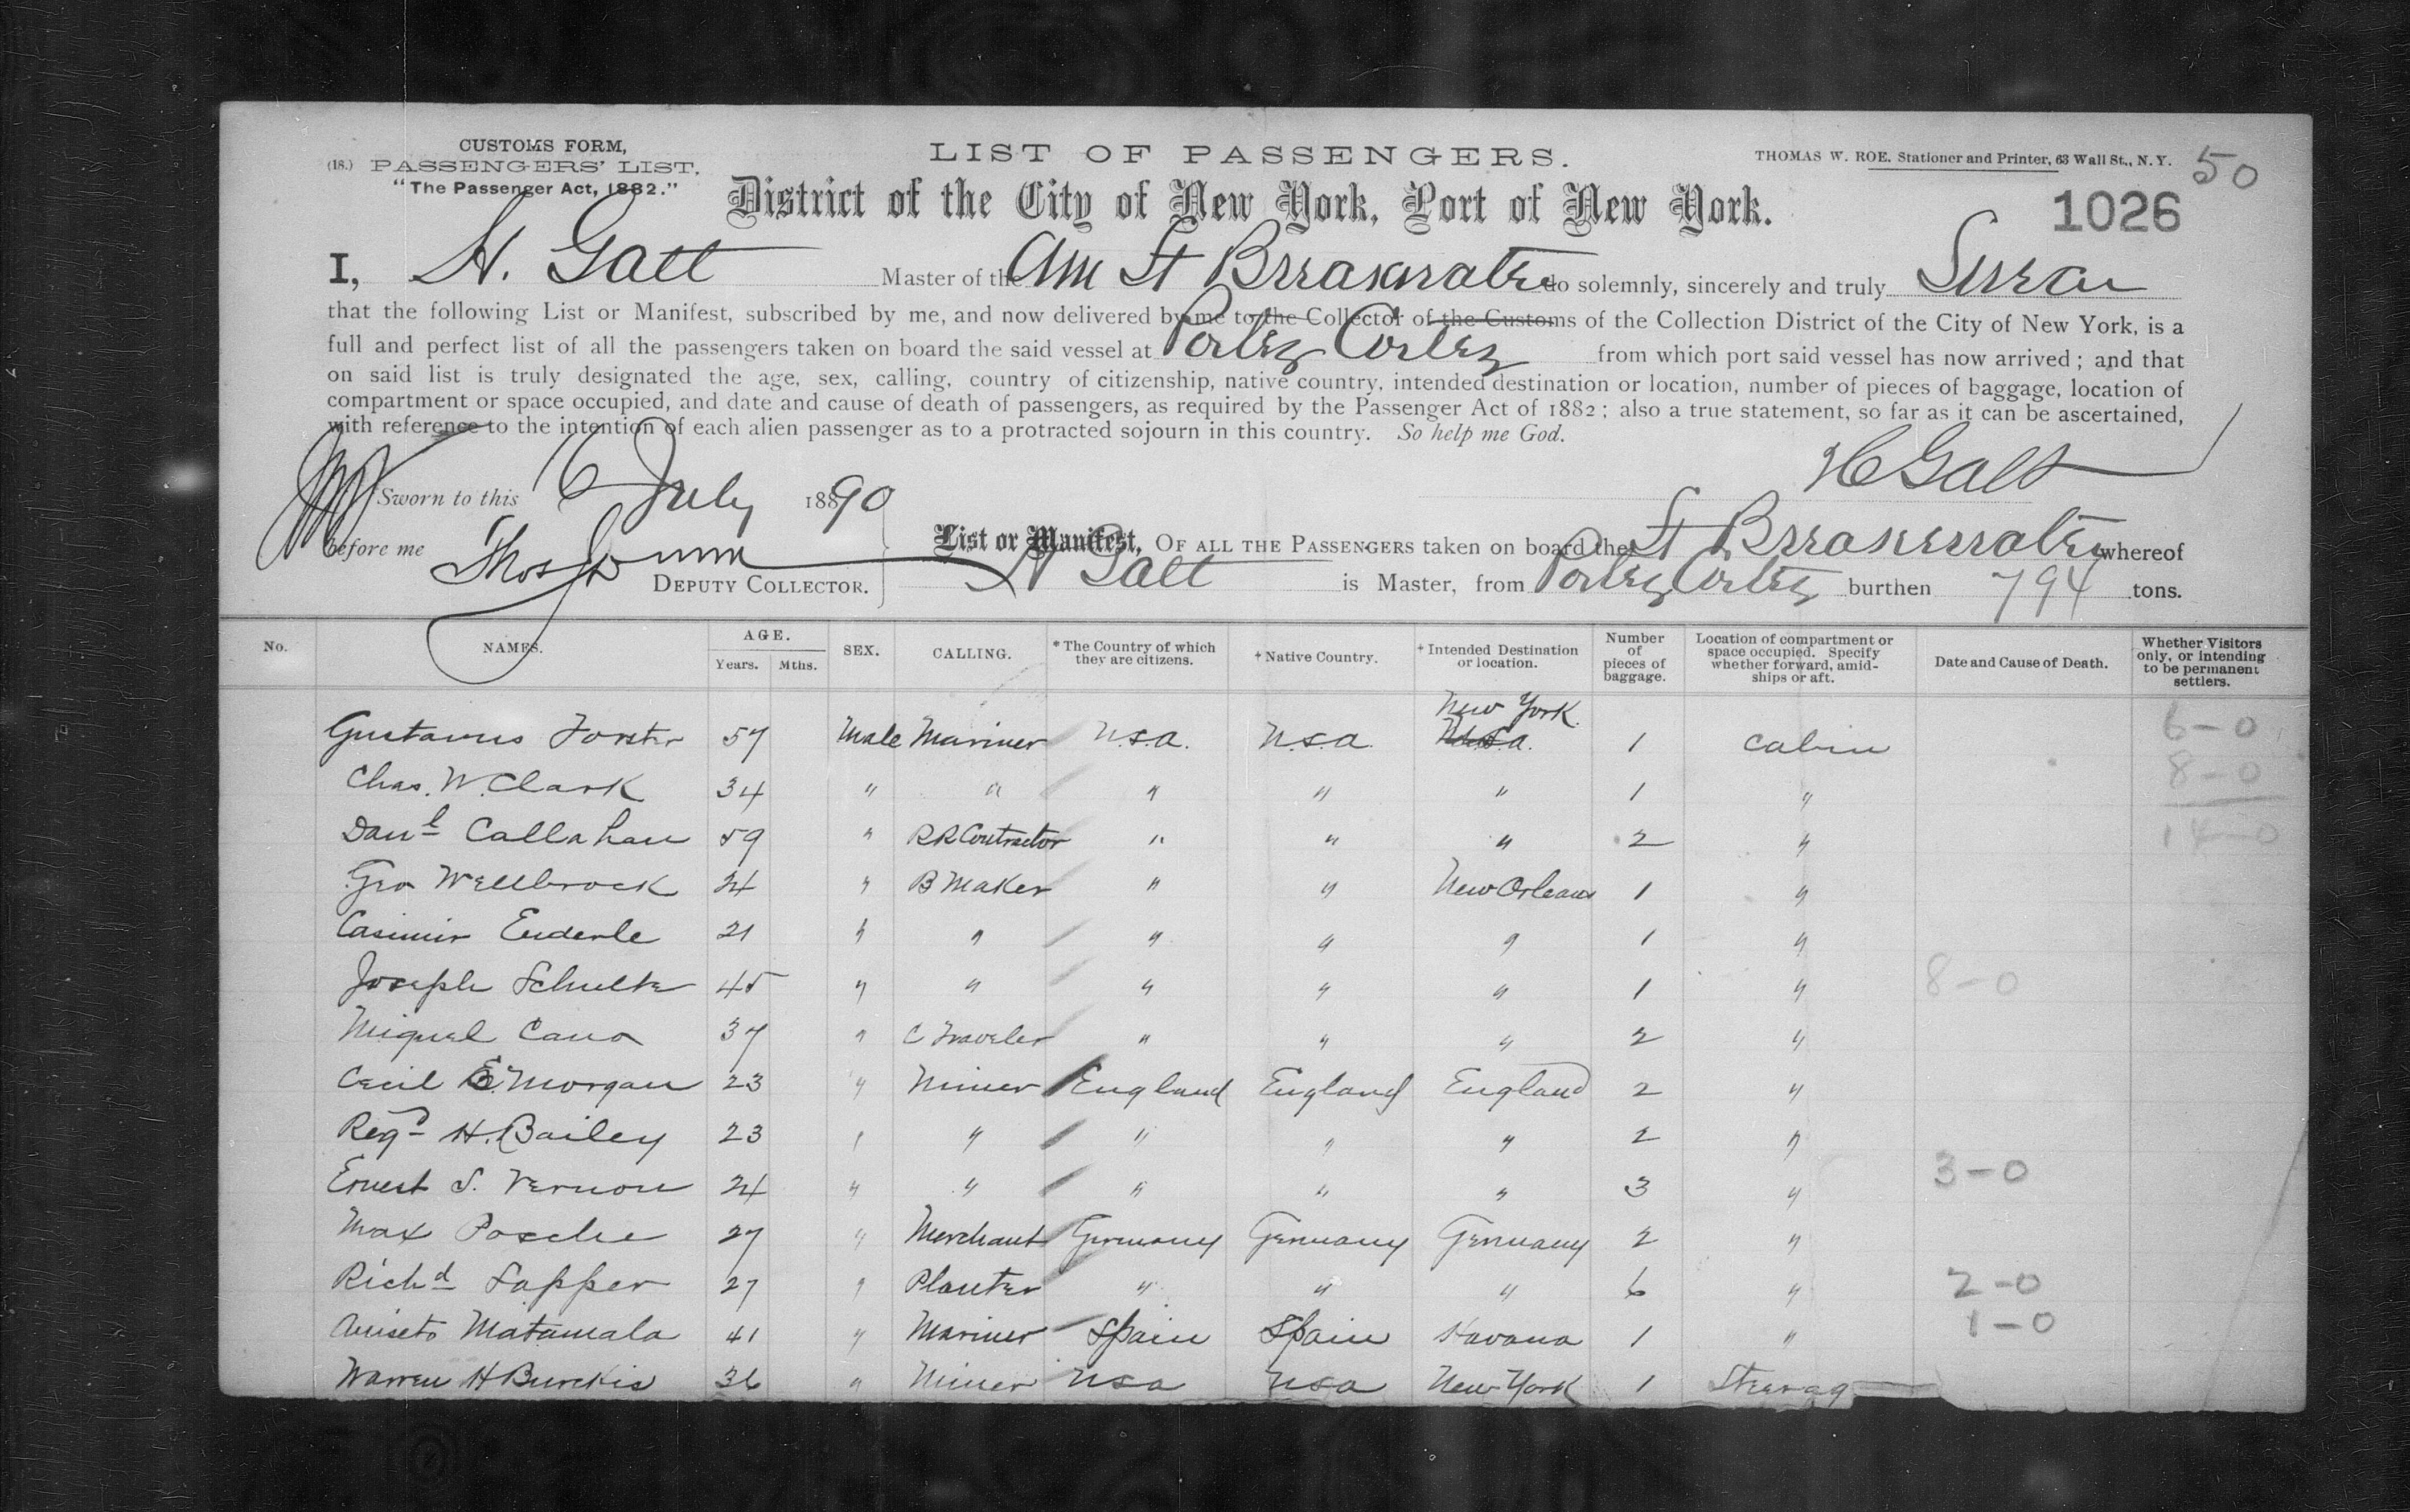 CUSTOMS FORM,
(18.) PASSENGERS' LIST,
"The Passenger Act, 1882."
LIST OF PASSENGERS.
THOMAS W. ROE. Stationer and Printer, 63 Wall St., N. Y.
50
District of the City of New York, Port of New York.
1026
I, H. Galt Master of the Am St Breakwater do solemnly, sincerely and truly Swear
that the following List or Manifest, subscribed by me, and now delivered by me to the Collector of the Customs of the Collection District of the City of New York, is a
full and perfect list of all the passengers taken on board the said vessel at Portez Cortez from which port said vessel has now arrived; and that
on said list is truly designated the age, sex, calling, country of citizenship, native country, intended destination or location, number of pieces of baggage, location of
compartment or space occupied, and date and cause of death of passengers, as required by the Passenger Act of 1882; also a true statement, so far as it can be ascertained,
with reference to the intention of each alien passenger as to a protracted sojourn in this country. So help me God.
H Galt
Sworn to this 16 July 1890
before me Thos
DEPUTY COLLECTOR.
List or Manifest, OF ALL THE PASSENGERS taken on board the St Breakwater whereof
H Galt is Master, from Portez Cortez burthen 794 tons.
No. NAMES. AGE. Years. Mths. SEX. CALLING. * The Country of which they are citizens. † Native Country. † Intended Destination or location. Number of pieces of baggage. Location of compartment or space occupied. Specify whether forward, amid-ships or aft. Date and Cause of Death. Whether Visitors only, or intending to be permanent settlers.
New York
Gustavus Forster 57 Male Mariner U.S.A. U.S.A. U.S.A. 1 Cabin 6-0
Chas. W. Clark 34 " " " " " 1 " 8-0
Danl Callahan 59 " RR Contractor " " " 2 " 14-0
Geo Wellbrock 24 " B Maker " " New Orleans 1 "
Casimir Enderle 21 " " " " " 1 "
Joseph Schulte 45 " " " " " 1 " 8-0
Miguel Cano 37 " C Traveler " " " 2 "
Cecil E. Morgan 23 " Miner England England England 2 "
Regd H. Bailey 23 " " " " " 2 "
Ernest S. Vernon 24 " " " " " 3 " 3-0
Max Posche 27 " Merchant Germany Germany Germany 2 "
Richd Sapper 27 " Planter " " " 6 " 2-0
Aniseto Matamala 41 " Mariner Spain Spain Havana 1 " 1-0
Warren H Burckis 36 " Miner USA USA New York 1 Steerag